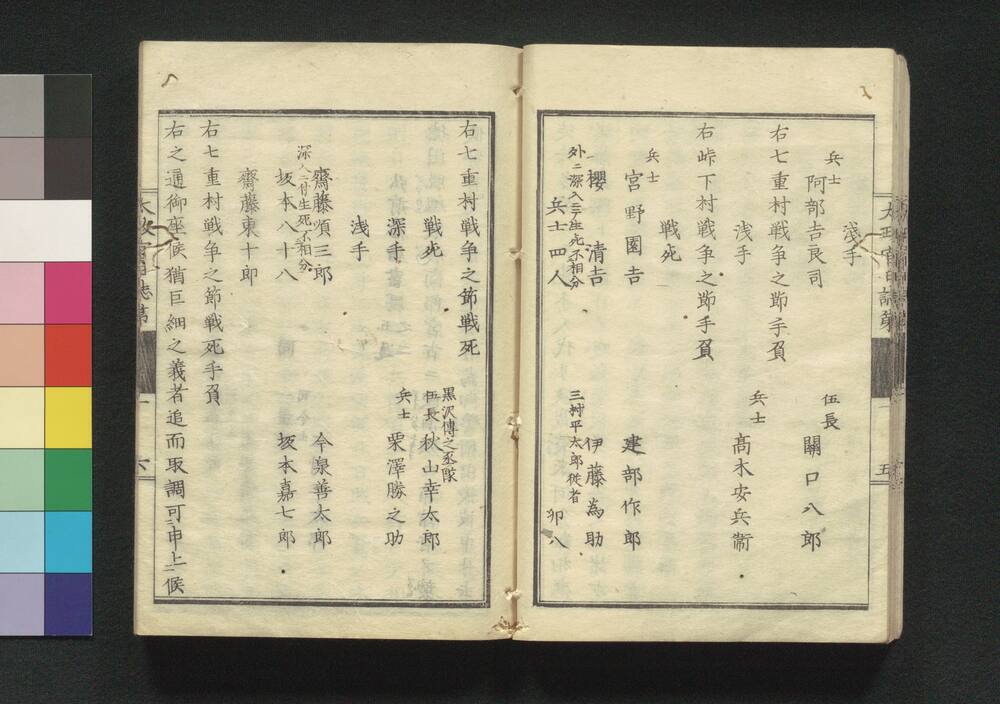 浅手
兵士
阿部吉良司
伍長
関口八郎
右七重村戦争之節手負
浅手
兵士
高木安兵衛
右峠下村戦争之節手負
戦死
兵士
宮野園吉
建部作郎
櫻清吉
伊藤為助
外ニ深入ニテ生死不相分
兵士四人
三村平太郎従者
卯八
右七重村戦争之節戦死
黒沢傳之丞隊
戦死
伍長秋山幸太郎
深手
兵士
栗澤勝之助
浅手
齋藤須三郎
今泉善太郎
深入ニ付生死不相分
坂本八十八
坂本嘉七郎
齋藤東十郎
右七重村戦争之節戦死手負
右之通御座候猶巨細之義者追而取調可申上候